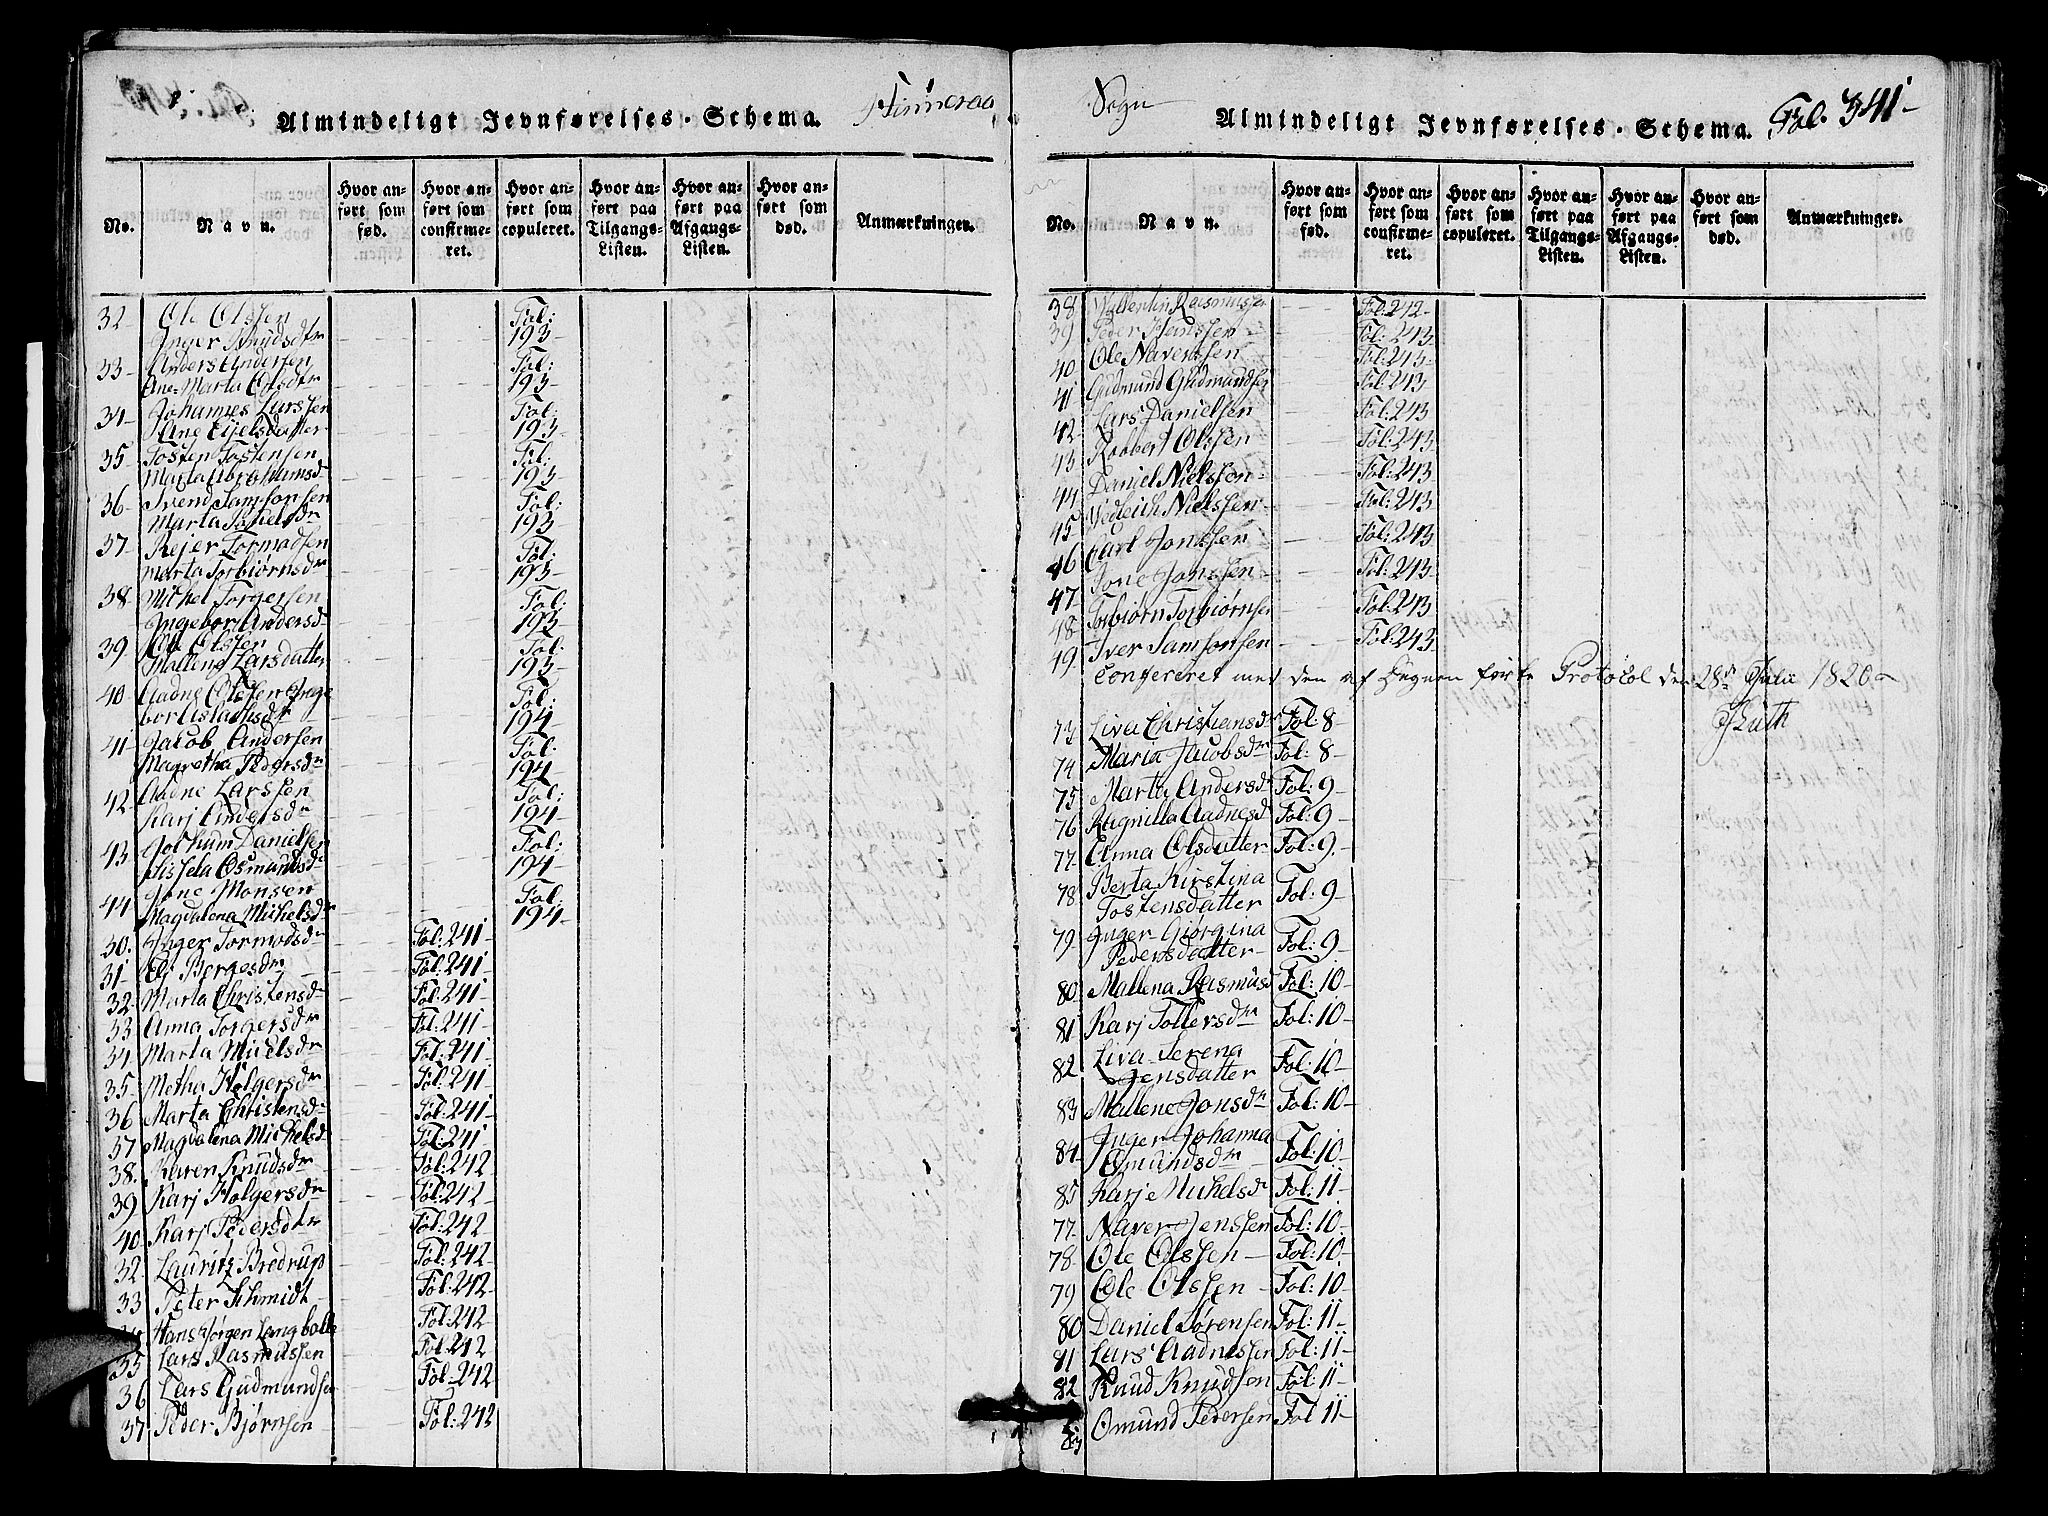 Almindeligt Jevnførelses-Schema.
No.
Navn.
Hvor anført som fød.
Hvor anført som confirmeret.
Hvor anført som copuleret.
Hvor anført paa Tilgangs-Listen.
Hvor anført paa Afgangs-Listen.
Hvor anført som død.
Anmærkninger.
32 Ole Olssen Fol:
Inger Knudsdtr 193
33 Anders Andersen Fol:
Ane Marta Olsdtr 193
34 Johannes Larssen Fol:
Ane Ejelsdatter 193
35 Tosten Tostensen Fol:
Marta Abrahamsd 193
36 Svend Samsonsen Fol:
Marta 193
37 Rejer Tormodsen Fol:
Marta Torbiørnsdr 193
38 Michel Torgersen Fol:
Ingebor Andersd 193
39 Ole Olssen Fol:
Mallena Larsdatter 193
40 Aadne Olssen Inge Fol:
bor Aslachsdr 194
41 Jacob Andersen Fol:
Magretha Pedersdr 194
42 Aadne Larssen Fol:
Karj Andersdr 194
43 Jochum Danielsen Fol:
Sissela Osmundsdr 194
44 Jone Monsen Fol:
Magdalena Michelsdr 194
30. Inger Tormodsdr Fol: 241
31 Eli Bergesdr Fol: 241
32. Marta Christensdr Fol: 241
33 Anna Torgersdr Fol: 241
34 Marta Michelsdr Fol: 241
35 Metha Holgersdr Fol: 241
36 Marta Christensdr Fol: 241
37 Magdalena Michelsd Fol: 241
38. Karen Knudsdr Fol: 242
39 Karj Holgersdr Fol: 242
40 Karj Pedersdtr Fol: 242
32 Lauritz Bredrup Fol: 242
33 Peter Schmidt Fol: 242
34 Hans Jørgen Langballe Fol: 242
35 Lars Rasmussen Fol: 242
36 Lars Gudmundsen Fol: 242
37 Peder Bjørnsen Fol: 242
Sogn
Almindeligt Jevnførelses-Schema.
Fol. 341
No.
Navn.
Hvor anført som fød.
Hvor anført som confirmeret.
Hvor anført som copuleret.
Hvor anført paa Tilgangs-Listen.
Hvor anført paa Afgangs-Listen.
Hvor anført som død.
Anmærkninger.
38 Wallentin Rasmussen Fol: 242
39 Peder Hanssen Fol: 243
40 Ole Navensen Fol: 243
41 Gudmund Gudmundsen Fol: 243
42 Lars Danielsen Fol: 243
43 Raabert Olssen Fol: 243
44 Daniel Nielssen Fol: 243
45 Vedleich Nielssen Fol: 243
46 Carl Jonssen Fol: 243
47 Jone Jonssen Fol: 243
48 Torbiørn Torbiørnsen Fol: 243
49 Iver Samsonsen Fol: 243
Confereret med den af Degnen førte Protocol den 28de Julii 1820
73 Liva Christiansdr Fol: 8
74 Maria Jacobsdr Fol: 8
75 Marta Andersdr Fol: 9
76 Ragnilla Aadnesd Fol: 9
77 Anna Olsdatter Fol: 9.
78 Berta Kirstina
Tostensdatter Fol: 9
79 Inger Giørgina
Pedersdatter Fol: 9
80 Mallena Rasmusd Fol: 10
81 Karj Tollersdr Fol: 10
82 Liva Serena
Jensdatter Fol: 10
83 Mallene Jonsdr Fol: 10
84 Inger Johanna
Osmundsdr Fol: 10
85 Karj Michelsdr Fol: 11
77 Naver Jenssen Fol: 10
78 Ole Olssen Fol: 10
79 Ole Olssen Fol: 10
80 Daniel Sørensen Fol: 11
81 Lars Aadnessen Fol: 11
82 Knud Knudsen Fol: 11
83 Omund Pedersen Fol 11